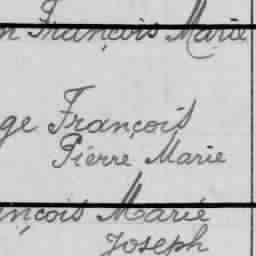 n François Marie
ge François
Pierre Marie
nçois Marie
Joseph